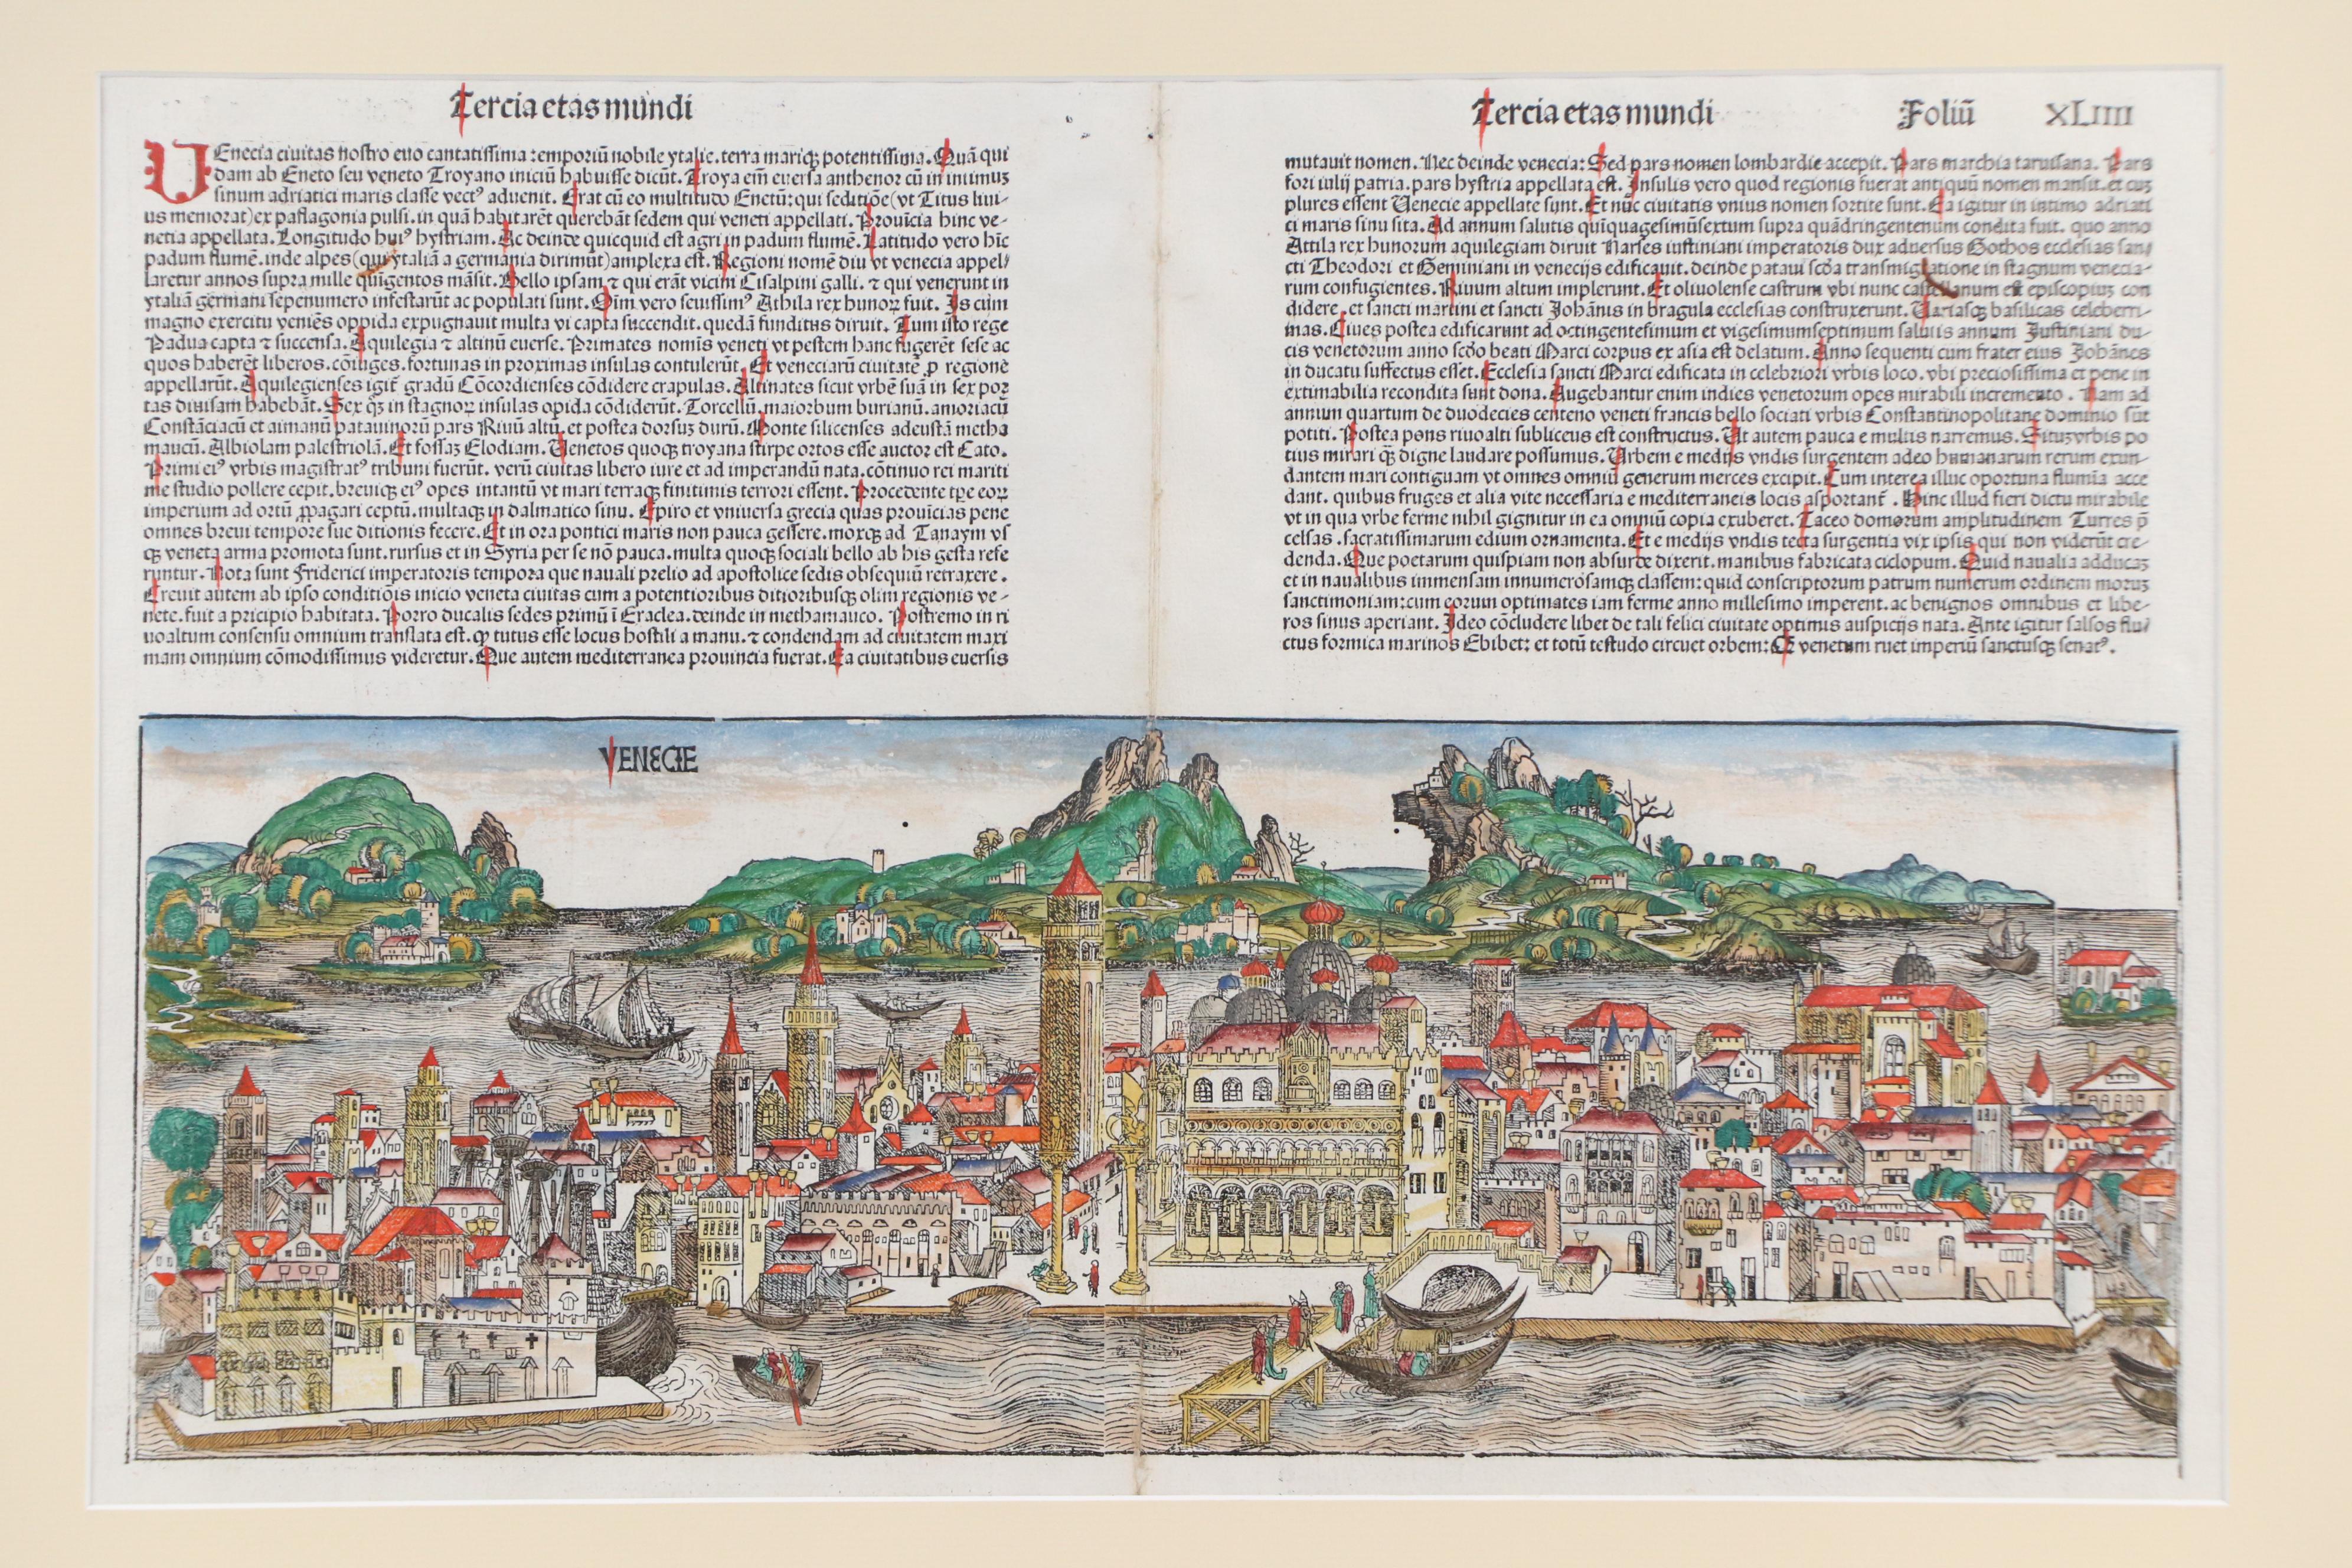 Tercia etas mundi
VEnecia ciuitas nostro euo cantatissima: emporiū nobile ytalie. terra mariqꝫ potentissima. Quā qui
dam ab Eneto seu veneto Troyano iniciū habuisse dicūt. Troya em̄ euersa anthenor cū in intimuꝫ
sinum adriatici maris classe vectꝰ aduenit. Erat cū eo multitudo Enetū: qui seditiōe (vt Titus liui-
us memorat) ex paflagonia pulsi. in quā habitarēt querebāt sedem qui veneti appellati. Prouīcia hinc ve-
netia appellata. Longitudo huiꝰ hystriam. Ac deinde quicquid est agri in padum flumē. Latitudo vero hīc
padum flumē. inde alpes (qui ytaliā a germania dirimūt) amplexa est. Regioni nomē diu vt venecia appel/
laretur annos supra mille quīgentos māsit. Bello ipsam ⁊ qui erāt vicini Cisalpini galli. ⁊ qui venerunt in
ytaliā germani sepenumero infestarūt ac populati sunt. Oīm vero seuissimꝰ Athila rex hunoꝝ fuit. Is cum
magno exercitu veniēs oppida expugnauit multa vi capta succendit. quedā funditus diruit. Tum isto rege
Padua capta ⁊ succensa. Aquilegia ⁊ altinū euerse. Primates nomīs veneti vt pestem hanc fugerēt sese ac
quos haberēt liberos. cōiuges. fortunas in proximas insulas contulerūt. Et venecciarū ciuitatē ꝑ regionē
appellarūt. Aquilegienses igit̄ gradū Cōcordienses cōdidere crapulas. Altinates sicut vrbē suā in sex por
tas diuisam habebāt. Sex qꝫ in stagnoꝝ insulas opida cōdiderūt. Torcellū. maiorbum burianū. amoriacū
Constāciacū et aimanū patauinorū pars Riuū altū. et postea dorsuꝫ durū. Monte silicenses adeustā metha
maucū. Albiolam palestriolā. Et fossaꝫ Elodiam. Venetos quoqꝫ troyana stirpe ortos esse auctor est Cato.
Primi eiꝰ vrbis magistratꝰ tribuni fuerūt. verū ciuitas libero iure et ad imperandū nata. cōtinuo rei mariti
me studio pollere cepit. breuiqꝫ eiꝰ opes intantū vt mari terraqꝫ finitimis terrori essent. Procedente tp̄e eoꝝ
imperium ad ortū ꝓpagari ceptū. multaqꝫ in dalmatico sinu. Epiro et vniuersa grecia quas prouīcias pene
omnes breui tempore sue ditionis fecere. Et in ora pontici maris non pauca gessere. moxqꝫ ad Tanaym vs
qꝫ veneta arma promota sunt. rursus et in Syria per se nō pauca. multa quoqꝫ sociali bello ab his gesta refe
runtur. Nota sunt Friderici imperatoris tempora que nauali prelio ad apostolice sedis obsequiū retraxere.
Creuit autem ab ipso conditiōis inicio veneta ciuitas cum a potentioribus ditioribusqꝫ olim regionis ve-
nete. fuit a pricipio habitata. Porro ducalis sedes primū ī Eraclea. deinde in methamauco. Postremo in ri
uoaltum consensu omnium translata est. ꝙ tutus esse locus hostili a manu. ⁊ condendam ad ciuitatem maxi
mam omnium cōmodissimus videretur. Que autem mediterranea prouincia fuerat. Ea ciuitatibus euersis
Tercia etas mundi Foliū XLIIII
mutauit nomen. Nec deinde venecia: Sed pars nomen lombardie accepit. Pars marchia taruisana. Pars
fori iulij patria. pars hystria appellata est. Insulis vero quod regionis fuerat antiquū nomen mansit. et cuꝫ
plures essent Venecie appellate sunt. Et nūc ciuitatis vnius nomen sortite sunt. Ea igitur in intimo adriati
ci maris sinu sita. Ad annum salutis quīquagesimūsextum supra quādringentenum condita fuit. quo anno
Attila rex hunorum aquilegiam diruit Narses iustiniani imperatoris dux aduersus Gothos ecclesias san/
cti Theodori et Geminiani in venecijs edificauit. deinde pataui scd̄a transmigratione in stagnum venecia-
rum confugientes. Riuum altum implerunt. Et oliuolense castrum vbi nunc castellanum est episcopiuꝫ con
didere. et sancti martini et sancti Johānis in bragula ecclesias construxerunt. Variasqꝫ basilicas celeberri-
mas. Ciues postea edificarunt ad octingentesimum et vigesimumseptimum salutis annum Justiniani du-
cis venetorum anno scd̄o beati Marci corpus ex asia est delatum. Anno sequenti cum frater eius Johānes
in ducatu suffectus esset. Ecclesia sancti Marci edificata in celebriori vrbis loco. vbi preciosissima et pene in
extimabilia recondita sunt dona. Augebantur enim indies venetorum opes mirabili incremento. Nam ad
annum quartum de duodecies centeno veneti francis bello sociati vrbis Constantinopolitane dominio sūt
potiti. Postea pons riuoalti subliceus est constructus. Ut autem pauca e multis narremus. Situꝫ vrbis po
tius mirari qꝫ digne laudare possumus. Urbem e medijs vndis surgentem adeo humanarum rerum exun-
dantem mari contiguam vt omnes omniū generum merces excipit. Cum interea illuc oportuna flumīa acce
dant. quibus fruges et alia vite necessaria e mediterraneis locis asportant̄. Hinc illud fieri dictu mirabile
vt in qua vrbe ferme nihil gignitur in ea omniū copia exuberet. Taceo domorum amplitudinem Turres p̄
celsas. sacratissimarum edium ornamenta. Et e medijs vndis tecta surgentia vix ipsis qui non viderūt cre-
denda. Que poetarum quispiam non absurde dixerit. manibus fabricata ciclopum. Quid naualia adducaꝫ
et in naualibus immensam innumerosamqꝫ classem: quid conscriptorum patrum numerum ordinem moruꝫ
sanctimoniam: cum eorum optimates iam ferme anno millesimo imperent. ac benignos omnibus et libe-
ros sinus aperiant. Ideo cōcludere libet de tali felici ciuitate optimis auspicijs nata. Ante igitur salsos flu/
ctus formica marinos Ebibet: et totū testudo circuet orbem: Qȝ venetum ruet imperiū sanctusqꝫ senatꝰ.
VENECIE